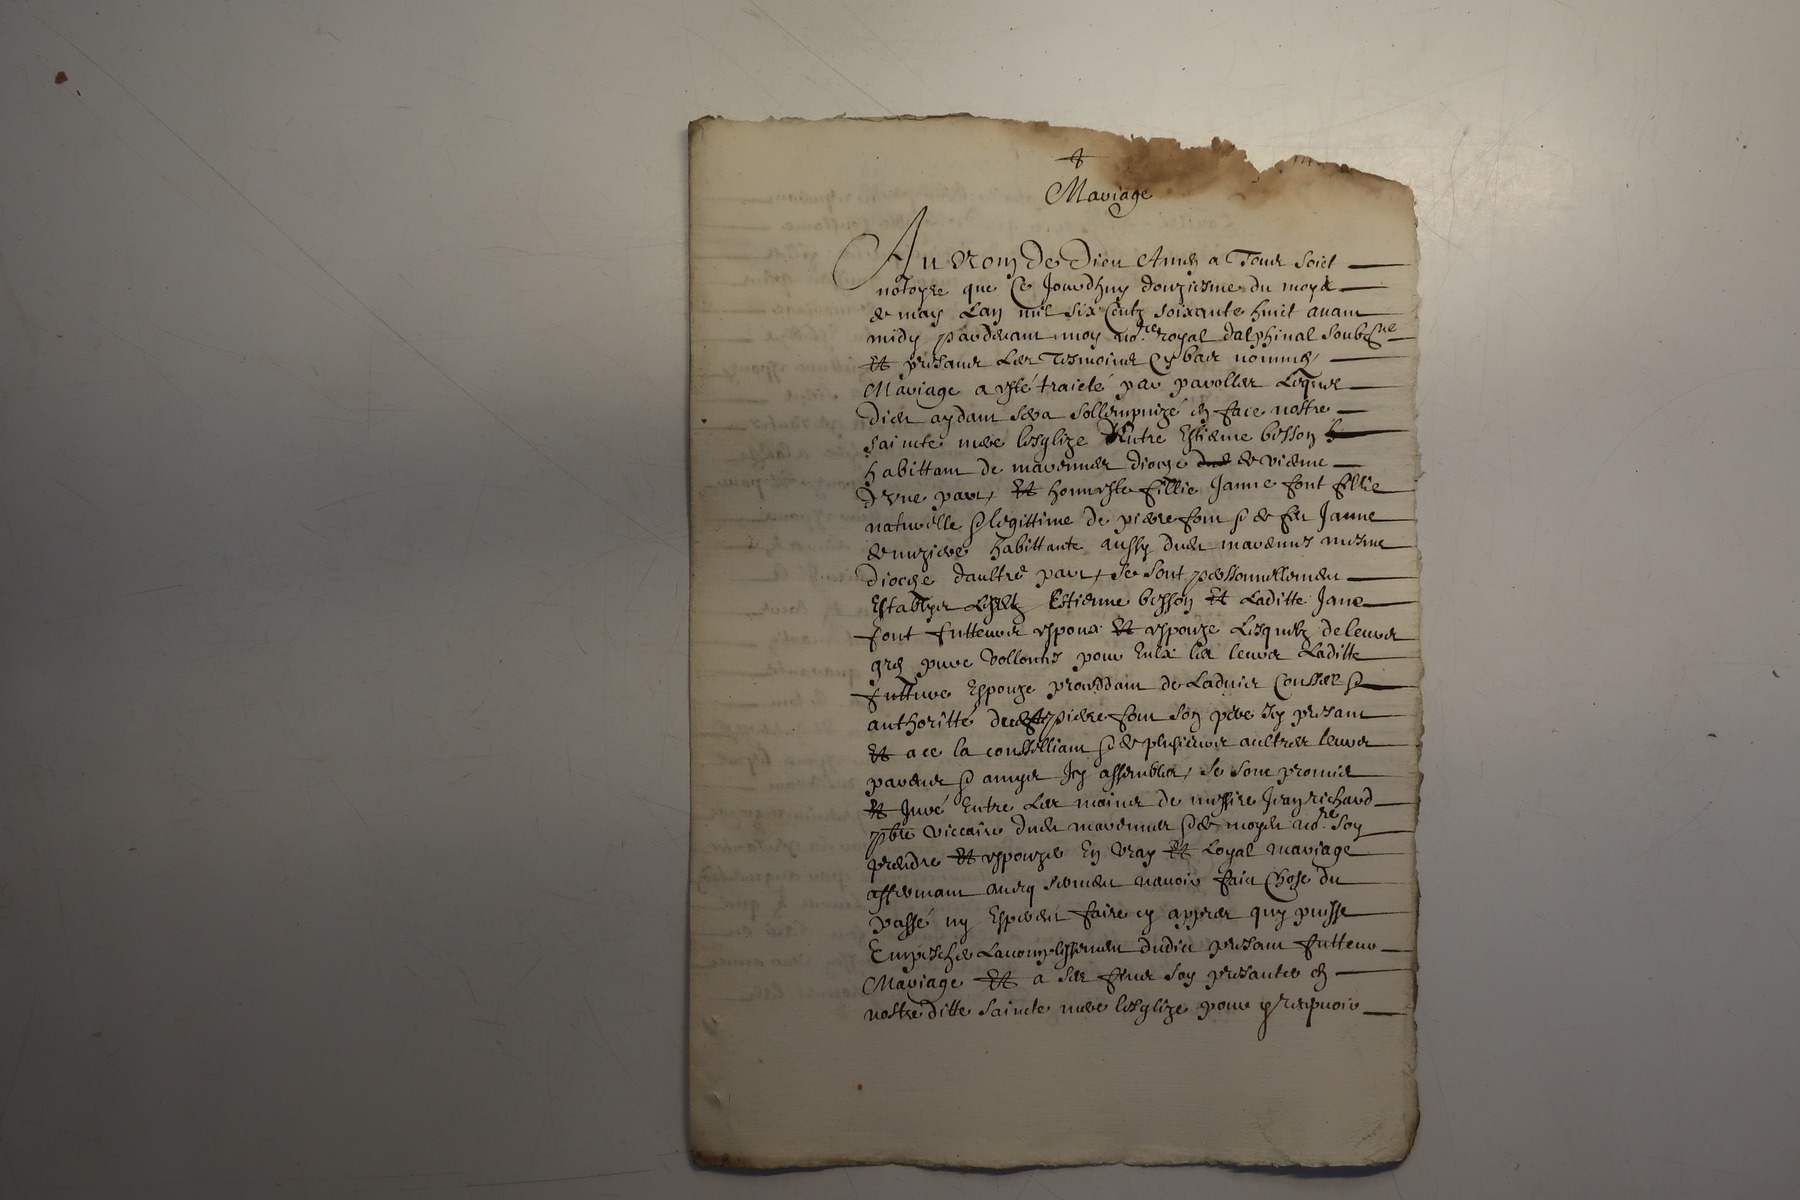 Mariage
Au nom de Dieu Amen a Tous soict
notoyre que Ce Jourdhuy douziesme du moys
de may Lan mil six Centz soixante huict avant
midy pardevant moy no.re royal dalphinal soubz.ne
Et presans Les Tesmoins Cy bas nommes
Mariage a esté traicté par parolles Lequel
Dieu aydant sera sollempnizé en face nostre
saincte mere lesglize Entre Estienne besson
habittant de marennes dioceze de vienne
D'une part, Et honneste fillie Janne font fillie
naturelle & legittime de pierre font & de feu Janne
habittante aussy dudit marennes mesme
Dioceze daultre part, se sont personnellement
Establys Lesditz Estienne besson Et Laditte Jane
font futteurs espoux Et espouze Lesquelz de leurs
gres pure vollontes pour Eulx les leurs Laditte
futture Espouze proceddant de Ladvis Conseil &
authoritté pierre font son pere Icy presant
Et a ce la conseilliant & de plusieurs aultres leurs
parens & amys Icy assembles, se sont promis
Et Juré Entre Les mains de messire Jean richard
pbre viccaire dudit marennes & de moydit no.re soy
prendre Et espouzer En vray Et Loyal mariage
affermant avecq serment navoir faict Chose du
passé ny Esperer faire cy appres quy puisse
Empescher Lacomplissement dudict presant futteur
Mariage Et a ses fins soy presanter en
nostre ditte saincte mere lesglize pour y recepvoir